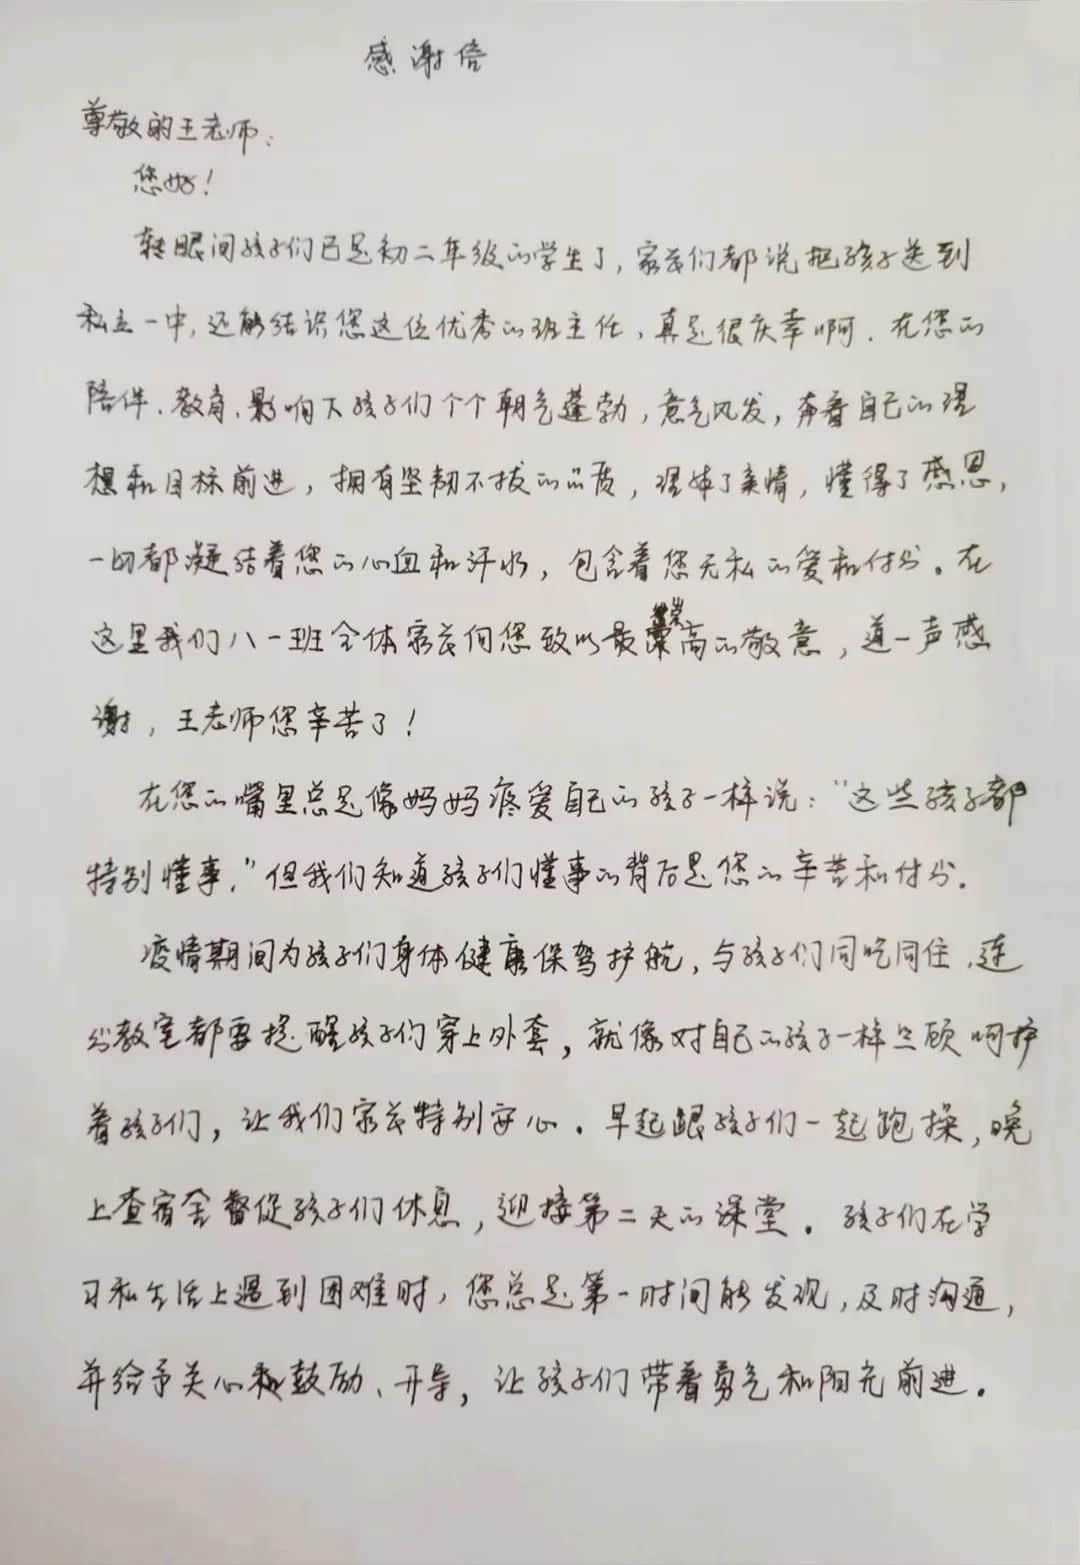 感谢信
尊敬的王老师:
您好!
转眼间孩子们已是初二年级的学生了,家长们都说把孩子送到
私立一中,还能结识您这位优秀的班主任,真是很庆幸啊.在您的
陪伴、教育、影响下孩子们个个朝气蓬勃,意气风发,奔着自己的理
想和目标前进,拥有坚韧不拔的品质,理解了亲情,懂得了感恩,
一切都凝结着您的心血和汗水,包含着您无私的爱和付出。在
这里我们八一班全体家长向您致以最崇高的敬意,道一声感
谢,王老师您辛苦了!
在您的嘴里总是像妈妈疼爱自己的孩子一样说:“这些孩子都
特别懂事.”但我们知道孩子们懂事的背后是您的辛苦和付出.
疫情期间为孩子们身体健康保驾护航,与孩子们同吃同住.连
出教室都要提醒孩子们穿上外套,就像对自己的孩子一样照顾呵护
着孩子们,让我们家长特别安心.早起跟孩子们一起跑操,晚
上查宿舍督促孩子们休息,迎接第二天的课堂.孩子们在学
习和生活上遇到困难时,您总是第一时间能发现,及时沟通,
并给予关心和鼓励、开导,让孩子们带着勇气和阳光前进.